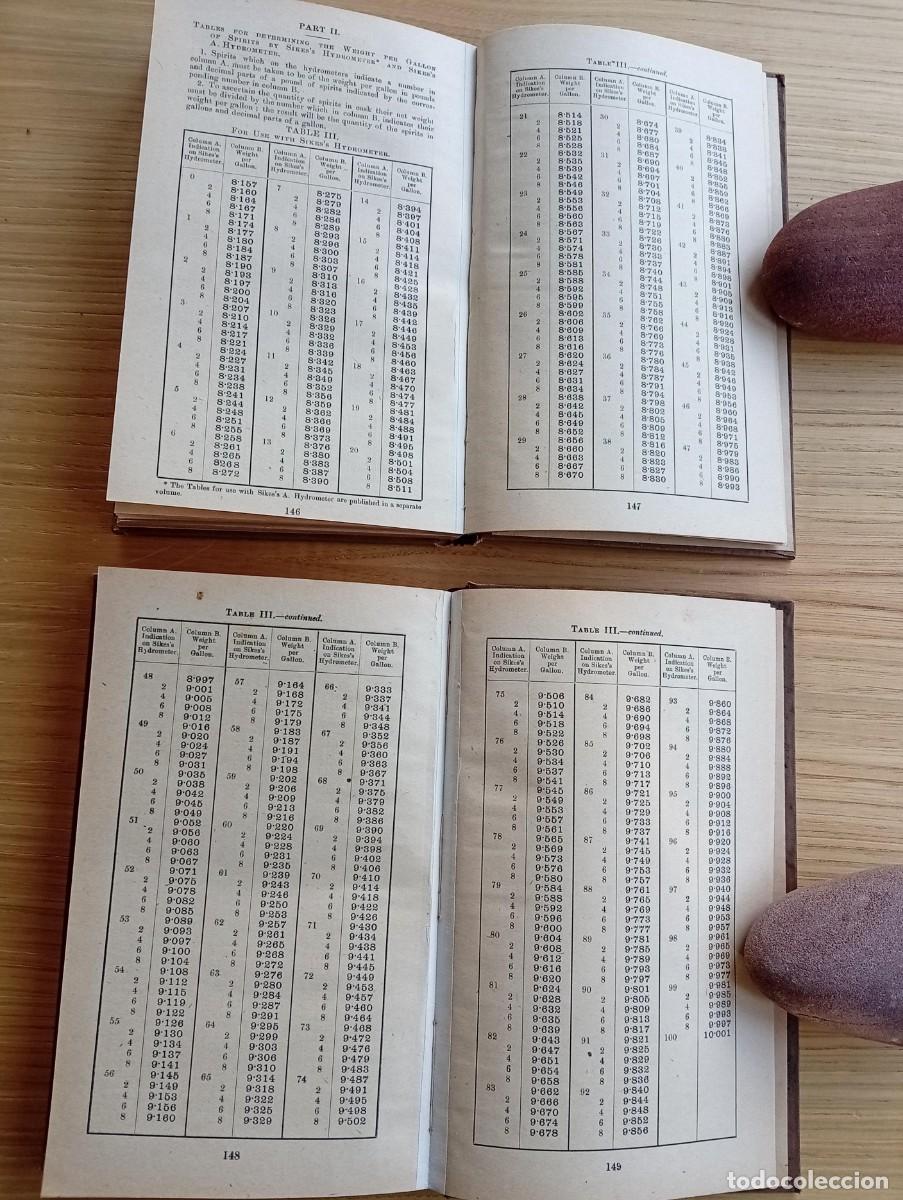 PART II.
TABLES FOR DETERMINING THE WEIGHT PER GALLON
OF SPIRITS BY SIKES'S HYDROMETER* AND SIKES'S
A. HYDROMETER.
1. Spirits which on the hydrometers indicate a number in
column A. must be taken to be of the weight per gallon in pounds
and decimal parts of a pound of spirits indicated by the corres-
ponding number in column B.
2. To ascertain the quantity of spirits in cask their net weight
must be divided by the number which in column B. indicates their
weight per gallon; the result will be the quantity of the spirits in
gallons and decimal parts of a gallon.
TABLE III.
FOR USE WITH SIKES'S HYDROMETER.
Column A. Column B. Column A. Column B. Column A. Column B.
Indication Weight Indication Weight Indication Weight
on Sikes's per on Sikes's per on Sikes's per
Hydrometer. Gallon. Hydrometer. Gallon. Hydrometer. Gallon.
0 8·157 7 8·275 14 8·394
2 8·160 2 8·279 2 8·397
4 8·164 4 8·282 4 8·401
6 8·167 6 8·286 6 8·404
8 8·171 8 8·289 8 8·408
1 8·174 8 8·293 15 8·411
2 8·177 2 8·296 2 8·414
4 8·180 4 8·300 4 8·418
6 8·184 6 8·303 6 8·421
8 8·187 8 8·307 8 8·425
2 8·190 9 8·310 16 8·428
2 8·193 2 8·313 2 8·432
4 8·197 4 8·316 4 8·435
6 8·200 6 8·320 6 8·439
8 8·204 8 8·323 8 8·442
3 8·207 10 8·326 17 8·446
2 8·210 2 8·329 2 8·449
4 8·214 4 8·332 4 8·453
6 8·217 6 8·336 6 8·456
8 8·221 8 8·339 8 8·460
4 8·224 11 8·342 18 8·463
2 8·227 2 8·345 2 8·467
4 8·231 4 8·349 4 8·470
6 8·234 6 8·352 6 8·474
8 8·238 8 8·356 8 8·477
5 8·241 12 8·359 19 8·481
2 8·244 2 8·362 2 8·484
4 8·248 4 8·366 4 8·488
6 8·251 6 8·369 6 8·491
8 8·255 8 8·373 8 8·495
6 8·258 13 8·376 20 8·498
2 8·261 2 8·380 2 8·501
4 8·265 4 8·383 4 8·504
6 8·268 6 8·387 6 8·508
8 8·272 8 8·390 8 8·511
* The Tables for use with Sikes's A. Hydrometer are published in a separate
volume.
146
TABLE III.—continued.
Column A. Column B. Column A. Column B. Column A. Column B.
Indication Weight Indication Weight Indication Weight
on Sikes's per on Sikes's per on Sikes's per
Hydrometer. Gallon. Hydrometer. Gallon. Hydrometer. Gallon.
21 8·514 30 8·674 39 8·834
2 8·518 2 8·677 2 8·838
4 8·521 4 8·680 4 8·841
6 8·525 6 8·684 6 8·845
8 8·528 8 8·687 8 8·848
22 8·532 31 8·690 40 8·852
2 8·535 2 8·694 2 8·855
4 8·539 4 8·697 4 8·859
6 8·542 6 8·701 6 8·862
8 8·546 8 8·704 8 8·866
23 8·549 32 8·708 41 8·869
2 8·553 2 8·712 2 8·873
4 8·556 4 8·715 4 8·876
6 8·560 6 8·719 6 8·880
8 8·563 8 8·722 8 8·883
24 8·567 33 8·726 42 8·887
2 8·571 2 8·729 2 8·890
4 8·574 4 8·733 4 8·894
6 8·578 6 8·737 6
8 8·581 8 8·740 8 8·901
25 8·585 34 8·744 43 8·905
2 8·588 2 8·748 2 8·909
4 8·592 4 8·751 4 8·913
6 8·595 6 8·755 6 8·916
8 8·599 8 8·758 8 8·920
26 8·602 35 8·762 44 8·924
2 8·606 2 8·766 2 8·928
4 8·609 4 8·769 4 8·931
6 8·613 6 8·773 6 8·935
8 8·616 8 8·776 8 8·938
27 8·620 36 8·780 45 8·942
2 8·624 2 8·784 2 8·946
4 8·627 4 8·787 4 8·949
6 8·631 6 8·791 6 8·953
8 8·634 8 8·794 8 8·956
28 8·638 37 8·798 46 8·960
2 8·642 2 8·802 2
4 8·645 4 8·805 4 8·968
6 8·649 6 8·809 6
8 8·652 8 8·812 8
29 8·656 38 8·816 47 8·979
2 8·660 2 8·820 2 8·983
4 8·663 4 8·823 4 8·986
6 8·667 6 8·827 6 8·990
8 8·670 8 8·830 8 8·993
147
TABLE III.—continued.
Column A. Column B. Column A. Column B. Column A. Column B.
Indication Weight Indication Weight Indication Weight
on Sikes's per on Sikes's per on Sikes's per
Hydrometer. Gallon. Hydrometer. Gallon. Hydrometer. Gallon.
48 8·997 57 9·164 66 9·333
2 9·001 2 9·168 2 9·337
4 9·005 4 9·172 4 9·341
6 9·008 6 9·175 6 9·344
8 9·012 8 9·179 8 9·348
49 9·016 58 9·183 67 9·352
2 9·020 2 9·187 2 9·356
4 9·024 4 9·191 4 9·360
6 9·027 6 9·194 6 9·363
8 9·031 8 9·198 8 9·367
50 9·035 59 9·202 68 9·371
2 9·038 2 9·206 2 9·375
4 9·042 4 9·209 4 9·379
6 9·045 6 9·213 6 9·382
8 9·049 8 9·216 8 9·386
51 9·052 60 9·220 69 9·390
2 9·056 2 9·224 2 9·394
4 9·060 4 9·228 4 9·398
6 9·063 6 9·231 6 9·402
8 9·067 8 9·235 8 9·406
52 9·071 61 9·239 70 9·410
2 9·075 2 9·243 2 9·414
4 9·078 4 9·246 4 9·418
6 9·082 6 9·250 6 9·422
8 9·085 8 9·253 8 9·426
53 9·089 62 9·257 71 9·430
2 9·093 2 9·261 2 9·434
4 9·097 4 9·265 4 9·438
6 9·100 6 9·268 6 9·442
8 9·104 8 9·272 8 9·445
54 9·108 63 9·276 72 9·449
2 9·112 2 9·280 2 9·453
4 9·115 4 9·284 4 9·457
6 9·119 6 9·287 6 9·460
8 9·122 8 9·291 8 9·464
55 9·126 64 9·295 73 9·468
2 9·130 2 9·299 2 9·472
4 9·134 4 9·303 4 9·476
6 9·137 6 9·306 6 9·479
8 9·141 8 9·310 8 9·483
56 9·145 65 9·314 74 9·487
2 9·149 2 9·318 2 9·491
4 9·153 4 9·322 4 9·495
6 9·156 6 9·325 6 9·498
8 9·160 8 9·329 8 9·502
148
TABLE III.—continued.
Column A. Column B. Column A. Column B. Column A. Column B.
Indication Weight Indication Weight Indication Weight
on Sikes's per on Sikes's per on Sikes's per
Hydrometer. Gallon. Hydrometer. Gallon. Hydrometer. Gallon.
75 9·506 84 9·682 93 9·860
2 9·510 2 9·686 2 9·864
4 9·514 4 9·690 4 9·868
6 9·518 6 9·694 6 9·872
8 9·522 8 9·698 8 9·876
76 9·526 85 9·702 94 9·880
2 9·530 2 9·706 2 9·884
4 9·534 4 9·710 4 9·888
6 9·537 6 9·713 6 9·892
8 9·541 8 9·717 8 9·896
77 9·545 86 9·721 95 9·900
2 9·549 2 9·725 2 9·904
4 9·553 4 9·729 4 9·908
6 9·557 6 9·733 6 9·912
8 9·561 8 9·737 8 9·916
78 9·565 87 9·741 96 9·920
2 9·569 2 9·745 2 9·924
4 9·573 4 9·749 4 9·928
6 9·576 6 9·753 6 9·932
8 9·580 8 9·757 8 9·936
79 9·584 88 9·761 97 9·940
2 9·588 2 9·765 2 9·944
4 9·592 4 9·769 4 9·948
6 9·596 6 9·773 6 9·953
8 9·600 8 9·777 8 9·957
80 9·604 89 9·781 98 9·961
2 9·608 2 9·785 2 9·965
4 9·612 4 9·789 4 9·969
6 9·616 6 9·793 6 9·973
8 9·620 8 9·797 8 9·977
81 9·624 90 9·801 99 9·981
2 9·628 2 9·805 2 9·985
4 9·632 4 9·809 4 9·989
6 9·635 6 9·813 6 9·993
8 9·639 8 9·817 8 9·997
82 9·643 91 9·821 100 10·001
2 9·647 2 9·825
4 9·651 4 9·829
6 9·654 6 9·832
8 9·658 8 9·836
83 9·662 92 9·840
2 9·666 2 9·844
4 9·670 4 9·848
6 9·674 6 9·852
8 9·678 8 9·856
149
todocoleccion